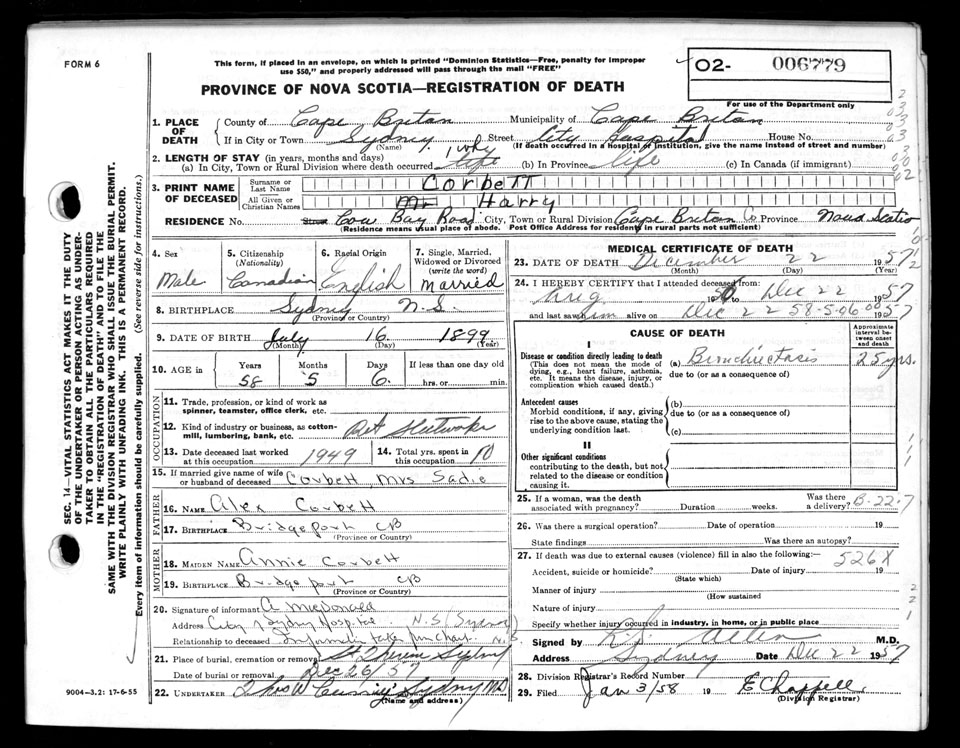 FORM 6
This form, if placed in an envelope, on which is printed "Dominion Statistics—Free, penalty for improper
use $50," and properly addressed will pass through the mail "FREE"
02- 006779
PROVINCE OF NOVA SCOTIA—REGISTRATION OF DEATH
For use of the Department only
1. PLACE OF DEATH
County of Cape Breton Municipality of Cape Breton
If in City or Town Sydney (Name) Street City Hospital House No.
(If death occurred in a hospital or institution, give the name instead of street and number)
2. LENGTH OF STAY (in years, months and days) 1 wk
(a) In City, Town or Rural Division where death occurred life (b) In Province life (c) In Canada (if immigrant)
3. PRINT NAME OF DECEASED
Surname or Last Name Corbett
All Given or Christian Names Mr Harry
RESIDENCE No. Street Cow Bay Road City, Town or Rural Division Cape Breton Co Province Nova Scotia
(Residence means usual place of abode. Post Office Address for residents in rural parts not sufficient)
4. Sex Male
5. Citizenship (Nationality) Canadian
6. Racial Origin English
7. Single, Married, Widowed or Divorced (write the word) Married
8. BIRTHPLACE Sydney N.S.
(Province or Country)
9. DATE OF BIRTH July 16 1899
(Month) (Day) (Year)
10. AGE in Years 58 Months 5 Days 6 If less than one day old hrs. or min.
OCCUPATION
11. Trade, profession, or kind of work as
spinner, teamster, office clerk, etc.
12. Kind of industry or business, as cotton-
mill, lumbering, bank, etc. Ret Steelworker
13. Date deceased last worked
at this occupation 1949
14. Total yrs. spent in
this occupation 10
15. If married give name of wife
or husband of deceased Corbett, Mrs Sadie
FATHER
16. NAME Alex Corbett
17. BIRTHPLACE Bridgeport CB
(Province or Country)
MOTHER
18. MAIDEN NAME Annie Corbett
19. BIRTHPLACE Bridgeport CB
(Province or Country)
20. Signature of informant A McDonald
Address City of Sydney Hospital N.S. (Sydney N.S.
Relationship to deceased
21. Place of burial, cremation or removal St Theresa Sydney
Date of burial or removal Dec 26/57
22. UNDERTAKER Sydney NS
(Name and address)
9004—3.2: 17-6-55
MEDICAL CERTIFICATE OF DEATH
23. DATE OF DEATH December 22 1957
(Month) (Day) (Year)
24. I HEREBY CERTIFY that I attended deceased from:
Aug 1950 to Dec 22 1957
and last saw him alive on Dec 22 58-5-06 1957
CAUSE OF DEATH
Approximate interval between onset and death
I
Disease or condition directly leading to death
(This does not mean the mode of dying, e.g., heart failure, asthenia, etc. It means the disease, injury, or complication which caused death.)
(a) Bronchiectasis 25 yrs.
due to (or as a consequence of)
Antecedent causes
Morbid conditions, if any, giving rise to the above cause, stating the underlying condition last.
(b)
due to (or as a consequence of)
(c)
II
Other significant conditions
contributing to the death, but not related to the disease or condition causing it.
25. If a woman, was the death
associated with pregnancy? Duration weeks. Was there a delivery? B-22-7
26. Was there a surgical operation? Date of operation 19
State findings Was there an autopsy?
27. If death was due to external causes (violence) fill in also the following:— 526X
Accident, suicide or homicide? Date of injury 19
(State which)
Manner of injury
(How sustained
Nature of injury
Specify whether injury occurred in industry, in home, or in public place
Signed by Allen M.D.
Address Sydney Date Dec 22 1957
28. Division Registrar's Record Number
29. Filed Jan 3/58 19 E Chappell
(Division Registrar)
SEC. 14—VITAL STATISTICS ACT MAKES IT THE DUTY
OF THE UNDERTAKER OR PERSON ACTING AS UNDER-
TAKER TO OBTAIN ALL THE PARTICULARS REQUIRED
IN THE "REGISTRATION OF DEATH" AND TO FILE THE
SAME WITH THE DIVISION REGISTRAR WHO SHALL ISSUE THE BURIAL PERMIT.
WRITE PLAINLY WITH UNFADING INK. THIS IS A PERMANENT RECORD.
Every item of information should be carefully supplied. (See reverse side for instructions.)